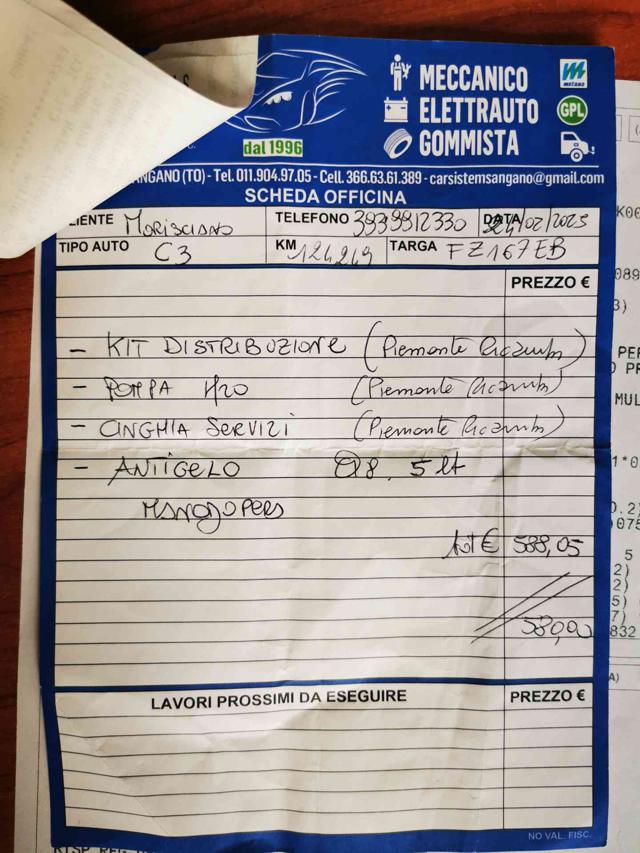 MECCANICO
metano
ELETTRAUTO
GPL
GOMMISTA
dal 1996
ANGANO (TO) - Tel. 011.904.97.05 - Cell. 366.63.61.389 - carsistemsangano@gmail.com
SCHEDA OFFICINA
LIENTE Morisciano TELEFONO 3939912330 DATA /02/2025
TIPO AUTO C3 KM 124249 TARGA FZ167EB
PREZZO €
- KIT DISTRIBUZIONE (Piemonte Ricambi)
- POMPA H20 (Piemonte Ricambi)
- CINGHIA SERVIZI (Piemonte Ricambi)
- ANTIGELO Q8 5 lt
MANODOPERA
tot € 588,05
580,00
LAVORI PROSSIMI DA ESEGUIRE PREZZO €
NO VAL. FISC.